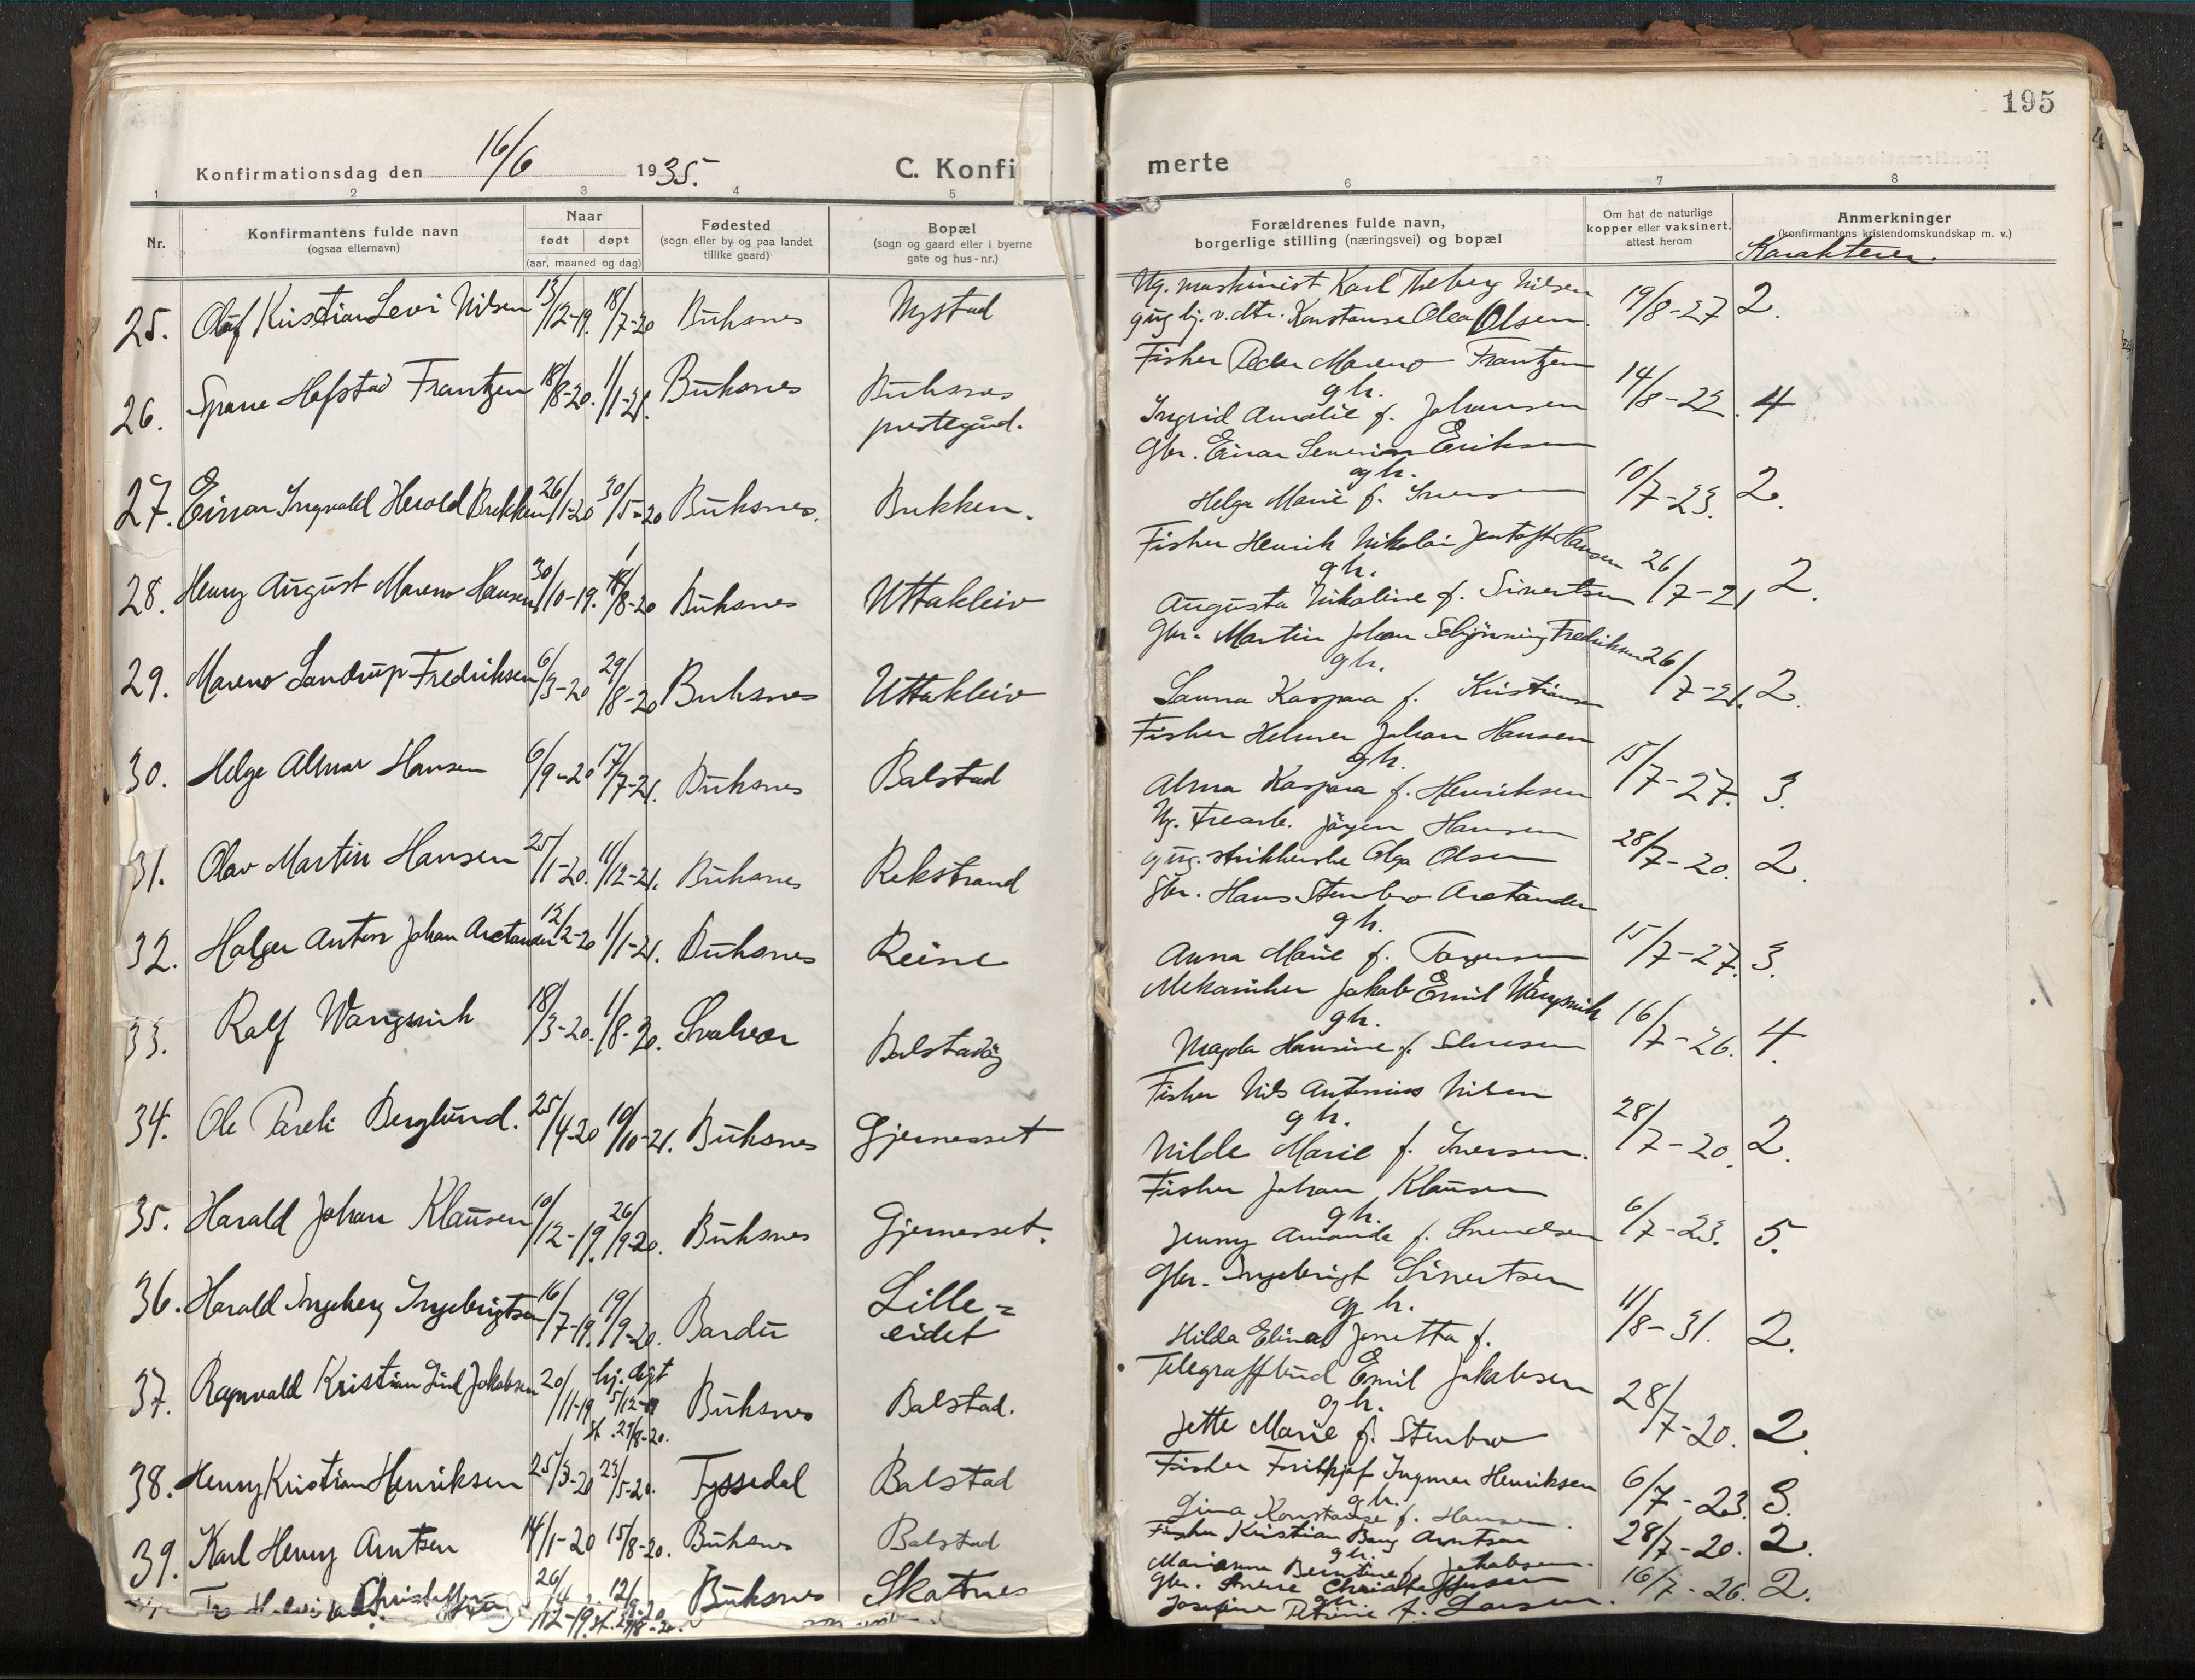 195
Konfirmationsdag den 16/6 1935. C. Konfi merte
1 2 3 4 5 6 7 8
Nr.
Konfirmantens fulde navn
(ogsaa efternavn)
Naar
født døpt
(aar, maaned og dag)
Fødested
(sogn eller by og paa landet
tillike gaard)
Bopæl
(sogn og gaard eller i byerne
gate og hus-nr.)
Forældrenes fulde navn,
borgerlige stilling (næringsvei) og bopæl
Om hat de naturlige
kopper eller vaksinert,
attest herom
Anmerkninger
(konfirmantens kristendomskundskap m. v.)
Karakterer.
25. Olaf Kristian Levi Nilsen 13/12-19. 18/7-20 Buksnes Mystad
Ug. maskinist Karl Theberg Nilsen
Konstanse Olea Olsen. 19/8-27 2.
26. Hofstad Frantzen 18/8-20. 1/1-21. Buksnes Buksnes
prestegård.
Fisker Peder Mareno Frantzen
g h.
Ingrid Amalie f. Johansen 14/8-22. 4
27. Einar Ingvald Herold Brekken 26/1-20 30/5-20 Buksnes. Brekken.
Gbr. Einar Severin Eriksen
og h.
Helga Marie f. Iversen 10/7-23. 2.
28. Henry August Mareno Hansen 30/10-19. 1/8-20 Buksnes Uttakleiv
Fisker Henrik Nikolai Jentoft Hansen
g h.
Augusta Nikoline f. Sivertsen 26/7-21 2.
29. Mareno Landrup Fredriksen 6/3-20 29/8-20 Buksnes Uttakleiv
Gbr. Martin Johan Schjønning Fredriksen
g h.
Laura Kaspara f. Kristiansen 26/7-21. 2.
30. Helge Almar Hansen 6/9-20 17/7-21. Buksnes Balstad
Fisker Helmer Johan Hansen
g h.
Alma Kaspara f. Henriksen 15/7-27. 3.
31. Olav Martin Hansen 25/1-20. 11/12-21. Buksnes Rekstrand
Ug. Jørgen Hansen
g ug. strikkerske Olga Olsen 28/7-20. 2.
32. Holger Anton Johan Arctander 12/2-20 1/1-21. Buksnes Reine
Gbr. Hans Stenbro Arctander
g h.
Anna Marie f. 15/7-27. 3.
33. Ralf Wangsvik 18/3-20. 1/8-20. Svolvær Balstad
Mekaniker Jakob Emil Wangsvik
g h.
Magda Hansine f. 16/7-26. 4.
34. Ole Pareli Berglund. 25/4-20 10/10-21. Buksnes Gjernesset
Fisker Nils Antonius Nilsen
g h.
Hilde Marie f. Iversen. 28/7-20. 2.
35. Harald Johan Klausen 10/12-19. 26/9-20. Buksnes Gjernesset.
Fisker Johan Klausen
g h.
Jenny Amanda f. Svendsen 6/7-23. 5.
36. Harald Ingeberg Ingebrigtsen 16/7-19. 19/9-20. Bardu Lille-
eidet
Gbr. Ingebrigt Sivertsen
g h.
Hilda Elina Jonetta f. 11/8-31. 2.
37. Ragnvald Kristian Lind Jakobsen 20/11-19 hj. døpt
5/12-19
st. 29/8-20. Buksnes Balstad.
Telegrafbud Emil Jakobsen
og h.
Jette Marie f. Stenbro 28/7-20. 2.
38. Henry Kristian Henriksen 25/3-20 23/5-20. Tyssedal Balstad
Fisker Frithjof Ingmar Henriksen
g h.
Dina Konstanse f. Hansen. 6/7-23. 3.
39. Karl Henry Arntsen 14/1-20 15/8-20. Buksnes Balstad
Fisker Kristian Bang Arntsen
g h.
Marianna Berntine f. Jakobsen. 28/7-20. 2.
Christoffersen 26/12-19. st. 29/8-20. Buksnes Skatnes
Gbr. Christoffersen
g h.
Josefine Petrine f. Larsen. 16/7-26. 2.